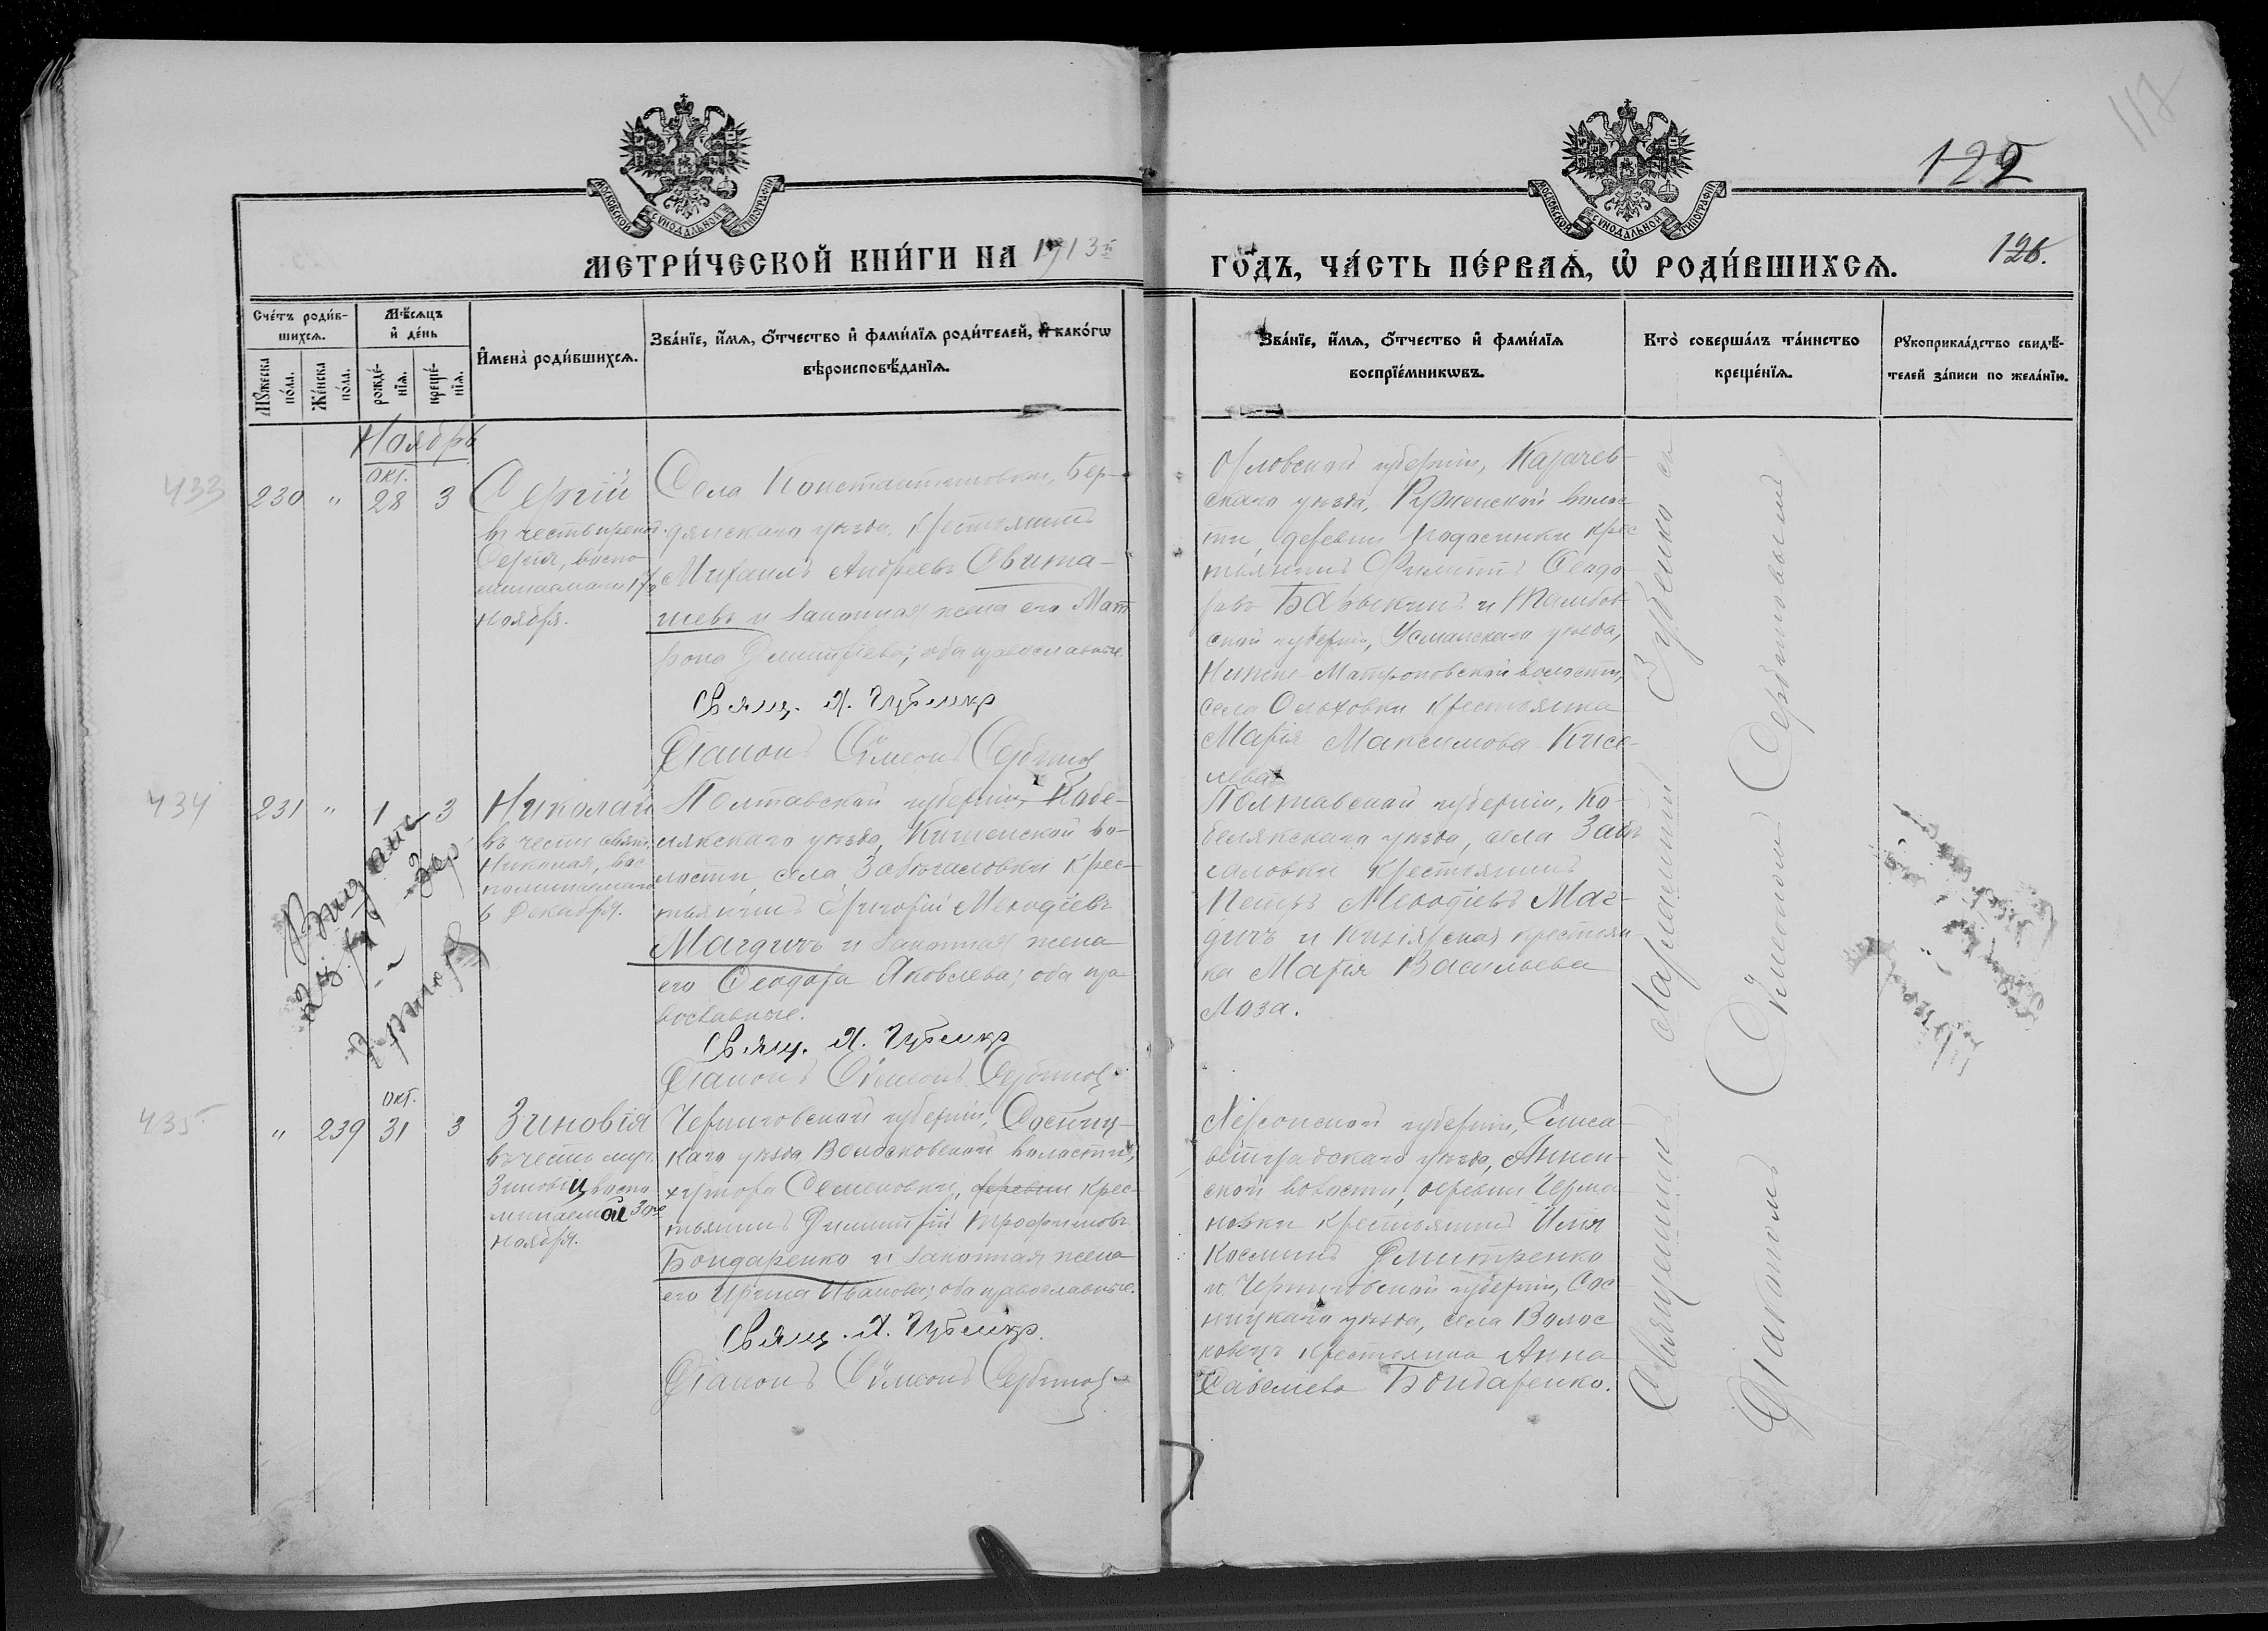 117
122
126.
МОСКОВСКОЙ СУНОДАЛЬНОЙ ТИПОГРАФІИ
МОСКОВСКОЙ СУНОДАЛЬНОЙ ТИПОГРАФІИ
МЕТРИ́ЧЕСКОЙ КНИ́ГИ НА 1913й
ГО́ДЪ, ЧА́СТЬ ПЕ́РВАЯ, Ѡ҆ РОДИ́ВШИХСЯ.
Сче́тъ роди́в-
шихся.
Мѣ́сяцъ
и҆ де́нь
Мꙋ́жеска
по́ла.
Же́нска
по́ла.
рожде́-
нїя.
креще́-
нїя.
И҆мена̀ роди́вшихся.
Зва́нїе, и҆́мя, ѻ҆́тчество и҆ фами́лїя роди́телей, и҆ како́гѡ
вѣроисповѣ́данїя.
Зва́нїе, и҆́мя, ѻ҆́тчество и҆ фами́лїя
воспрїе́мникѡвъ.
Кто̀ соверша́лъ та́инство
креще́нїя.
Рꙋкоприкла́дство свидѣ́-
телей за́писи по жела́нїю.
Ноябрь
433
230 " окт. 28 3
Сергій
въ честь препод.
Сергія, воспо-
минаемаго 17
ноября.
Села Константиновки, Бер-
дянскаго уѣзда, крестьянинъ
Михаилъ Андреевъ Овита-
шевъ и законная жена его Мат
рона Димитріева; оба православные.
Свящ. Л. Губенко
Діаконъ Сѵмеонъ Сербиновъ
Орловской губерніи, Карачев-
скаго уѣзда, Руженской волос
ти, деревни Подосинки крес
тьянинъ Филиппъ Феодо
ровъ Барыкинъ и Тамбов
ской губерніи, Усманскаго уѣзда,
Нижне-Матреновской волости,
села Ольховки крестьянка
Марія Максимова Кисе-
лева
434
231 " 1 3
Николай
въ честь святит.
Николая, вос
поминаемаго
6 Декабря.
Полтавской губерніи, Кобе-
лякскаго уѣзда, Кишенской во-
лости, села Забѣгаловки крес-
тьянинъ Григорій Меѳодіевъ
Магдичъ и законная жена
его Феодора Яковлева; оба пра
вославные.
Свящ. Л. Губенко
Діаконъ Сѵмеонъ Сербиновъ
Полтавской губерніи, Ко-
белякскаго уѣзда, села Забѣ
галовки крестьянинъ
Петръ Меѳодіевъ Маг-
дичъ и Кизіярская крестьян-
ка Марія Васильева
Лоза.
435
" 239 окт. 31 3
Зиновія
въ честь муч.
Зиновіи, воспо
минаемой 30го
ноября.
Черниговской губерніи, Сосниц-
каго уѣзда Волосковской волости,
хутора Семеновки, деревни крес-
тьянинъ Димитрій Трофимовъ
Бондаренко и законная жена
его Ирина Иванова; оба православные.
Свящ. Л. Губенко
Діаконъ Сѵмеонъ Сербиновъ
Херсонской губерніи, Елиса-
ветградскаго уѣзда, Аннен-
ской волости, деревни Герма
новки крестьянинъ Илія
Косминъ Дмитренко
и Черниговской губерніи, Сос
ницкаго уѣзда, села Волос
ковецъ крестьянка Анна
Савелиева Бондаренко.
Священникъ Губенко съ
Діакономъ Сѵмеономъ Сербиновымъ